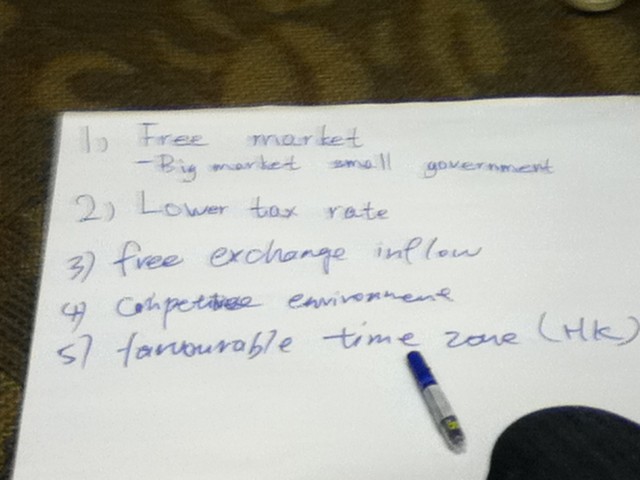 1) Free market
- Big market small government
2) Lower tax rate
3) free exchange inflow
4) competitive environment
5) favourable time zone (HK)